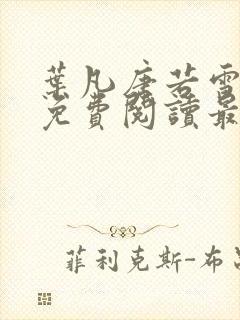 葉凡唐若雪
免費閱讀最
菲利克斯-布